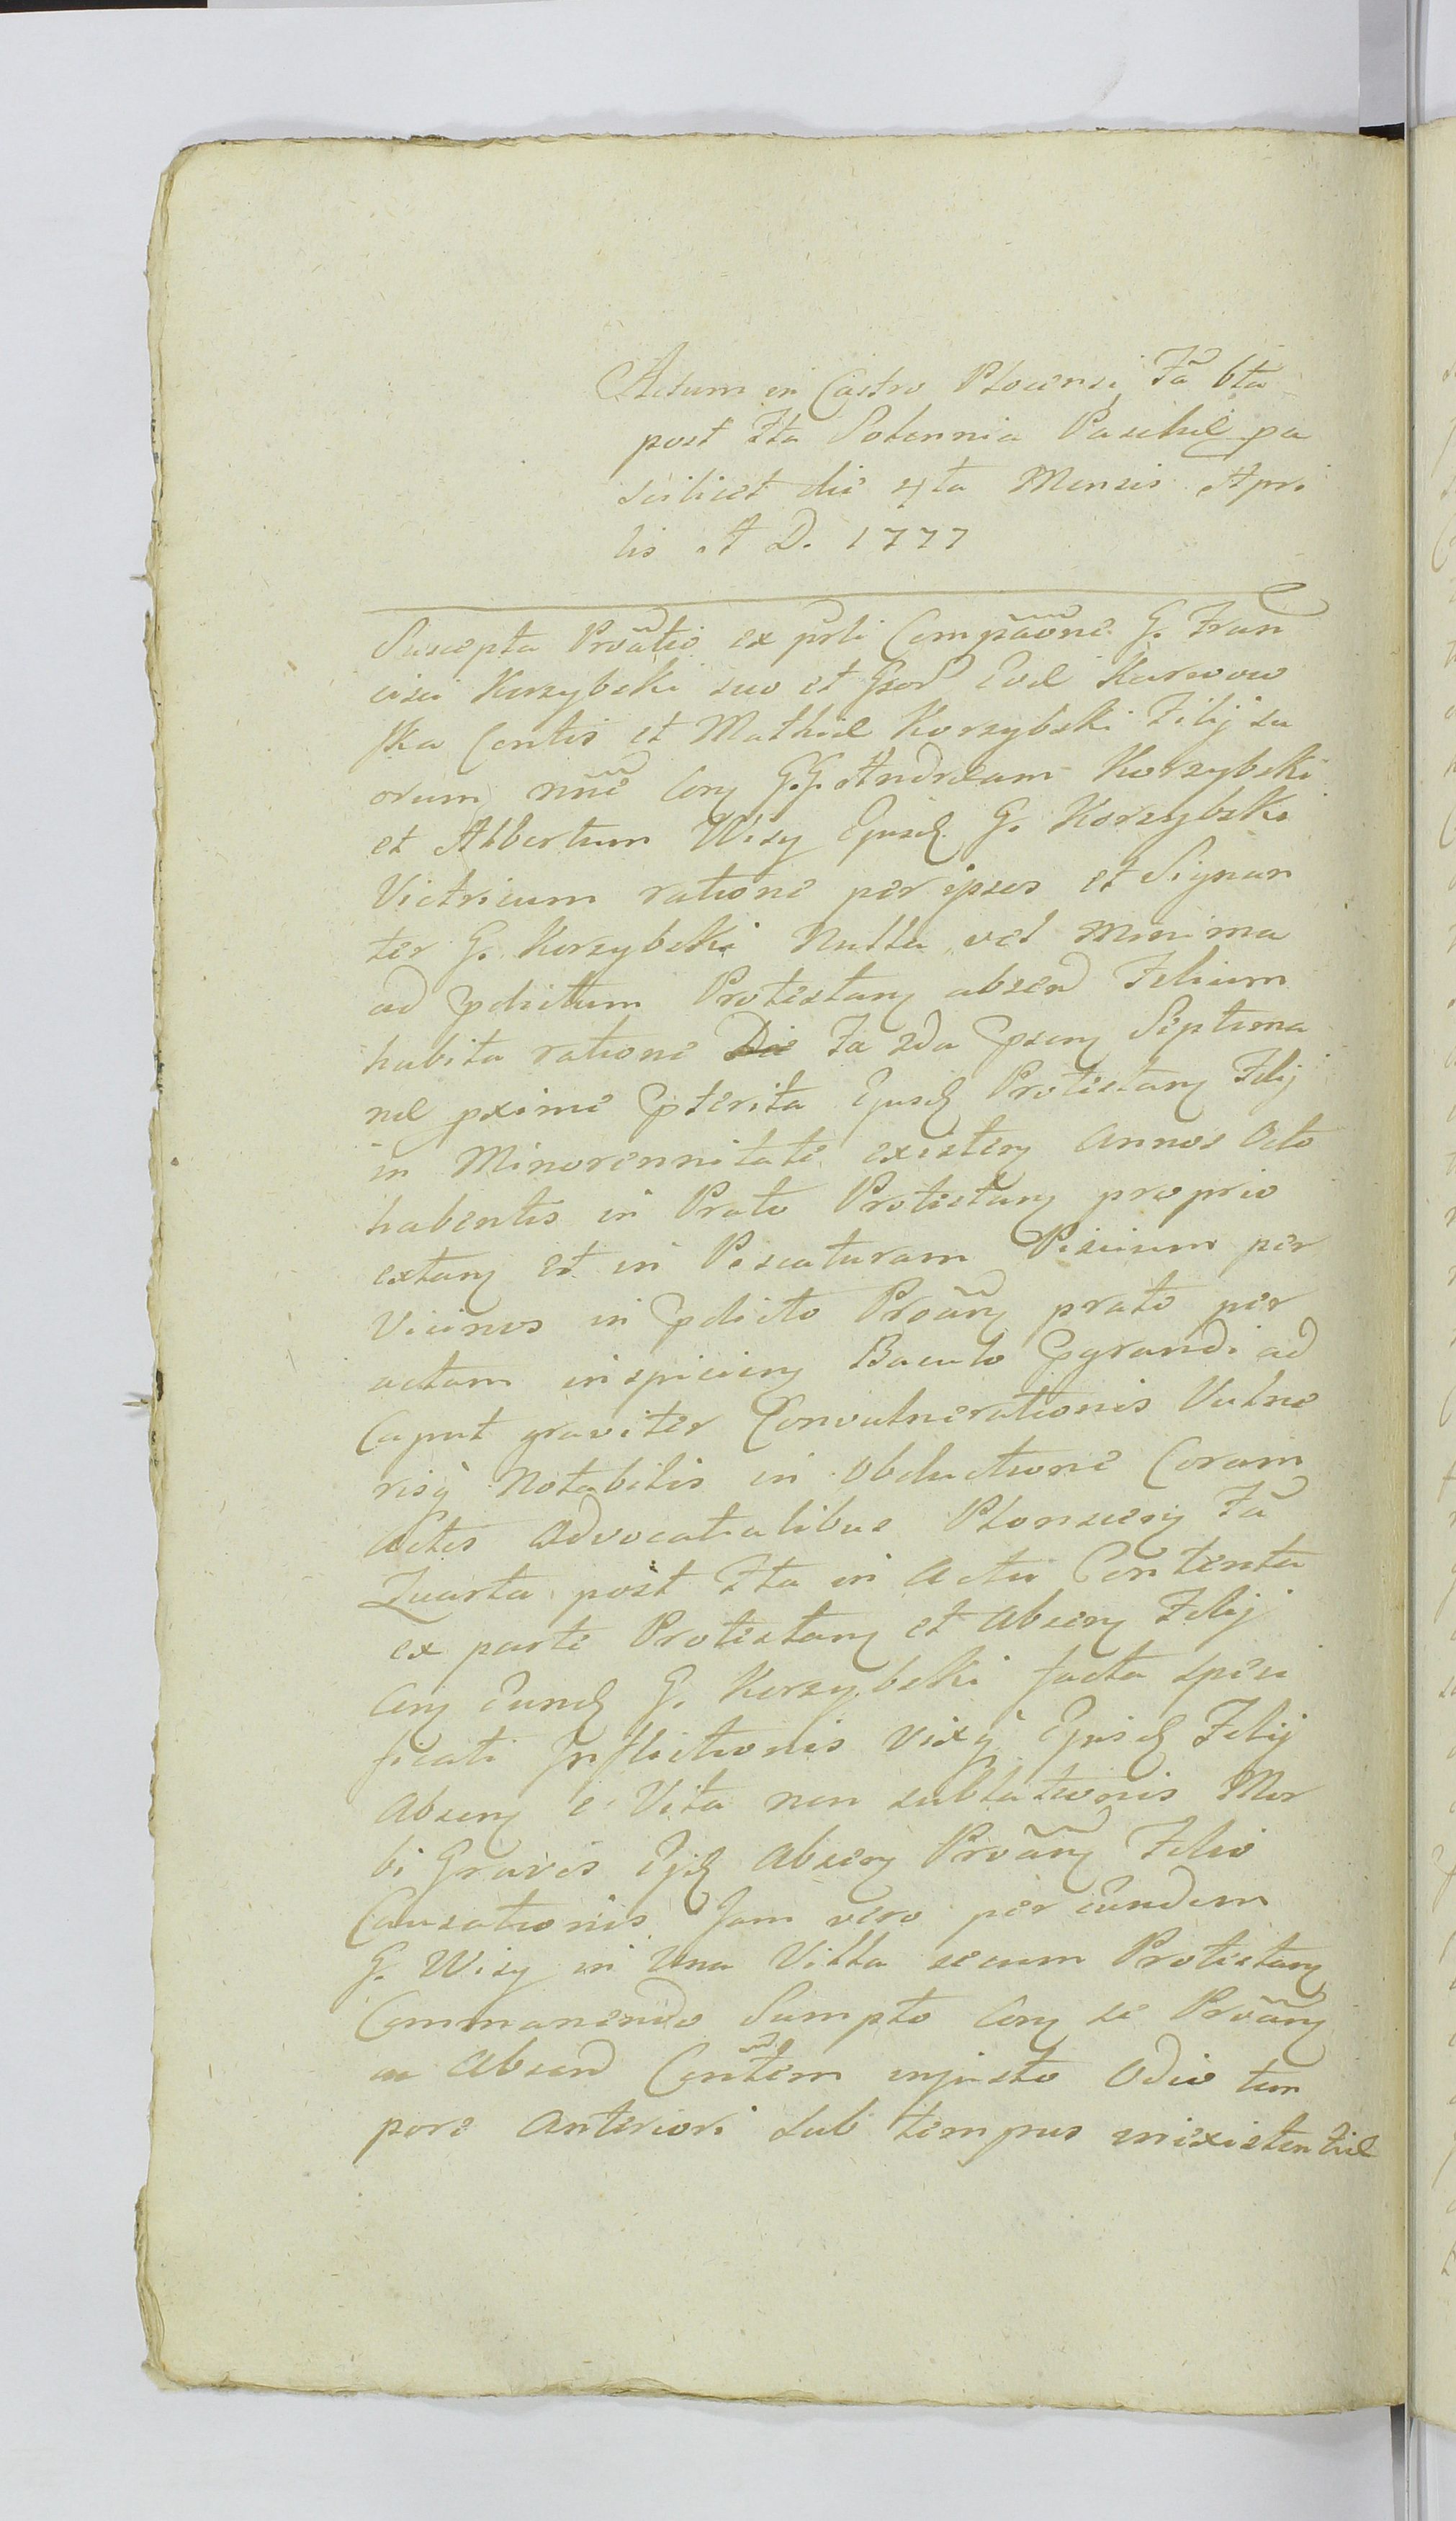 Actum in Castro Plocensi Fã 6ta
post Fta Solennia Paschæ pa
scilicet die 4ta Mensis Apri
lis A D. 1777
Suscepta Prõatio ex prli Compãõne G. Fran
cisci Korzybski suo et Gsor Evæ Karwow
ska Contis et Mathiæ Korzybski Filij su
orum nñe Con G.G. Andream Korzybski
et Albertum Wisy Ejusd G. Korzybski
Victricum ratione per ipsos et Signan
ter G. Korzybski Nulla vel Minima
ad pdictum Protestan absen Filium
habita ratione Die Fa 2da psen Septima
næ pxime pterita Ejusd Protestan Filij
in Minorennitate existen annos Octo
habentis in Prato Protestan proprio
extan et in Piscaturam Piscium per
Vicinos in pdicto Prõan prato per
actam inspicien Baculo pgrandi ad
Caput graviter Convulnerationis Vulne
risq Notabilis in Obductione Coram
Actis Advocatialibus Plonscen Fã
Quarta post Fta in Actu Contenta
ex parte Protestan et absen Filij
Con Eund G. Korzybski facta speci
ficati Inflictionis vixq Ejusd Filij
Absen e Vita non sublationis Mor
bi Gravis Ejd Absen Prõan Filio
Causationis Jam vero per eundem
G. Wisy in Una Villa secum Protestan
Commanendo Sumpto Con se Prõan
ac Absen Contem injusto Odio tem
pore anteriori sub tempus inexistentiæ